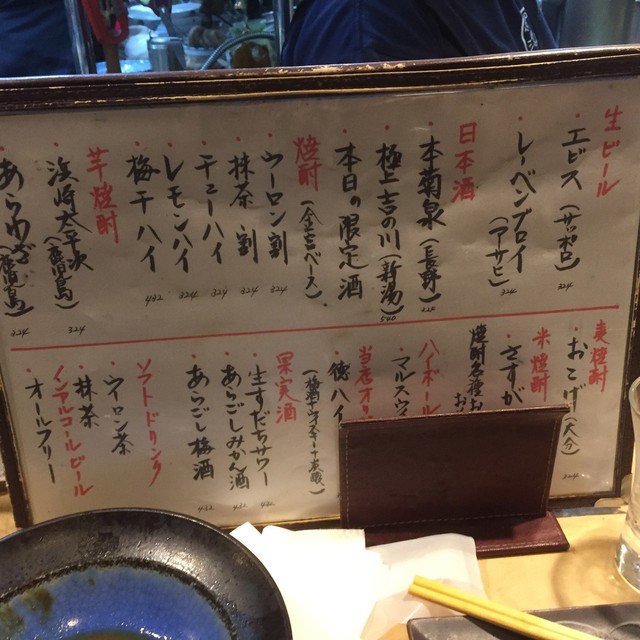 生ビール
・エビス(サッポロ)
524
・レーベンブロイ
(アサヒ)
524
日本酒
・本菊泉(長野)
・極上吉の川(新潟)
・本日の限定酒
焼酎
・ウーロン割
324
・抹茶割
324
・干ニーハイ
324
・レモンハイ
324
・梅干ハイ
432
芋焼酎
・浜崎太平次
(鹿児島)
324
・あらわざ(鹿児島)
324
麦焼酎
・おこげ
米焼酎
・さすが
ハイボール
・マルス
当店オリ
果実酒
・生すだちサワー
432
・あらごしみかん酒
432
・あらごし梅酒
432
ソフトドリンク
・ウーロン茶
・抹茶
ノンアルコールビール
・オールフリー